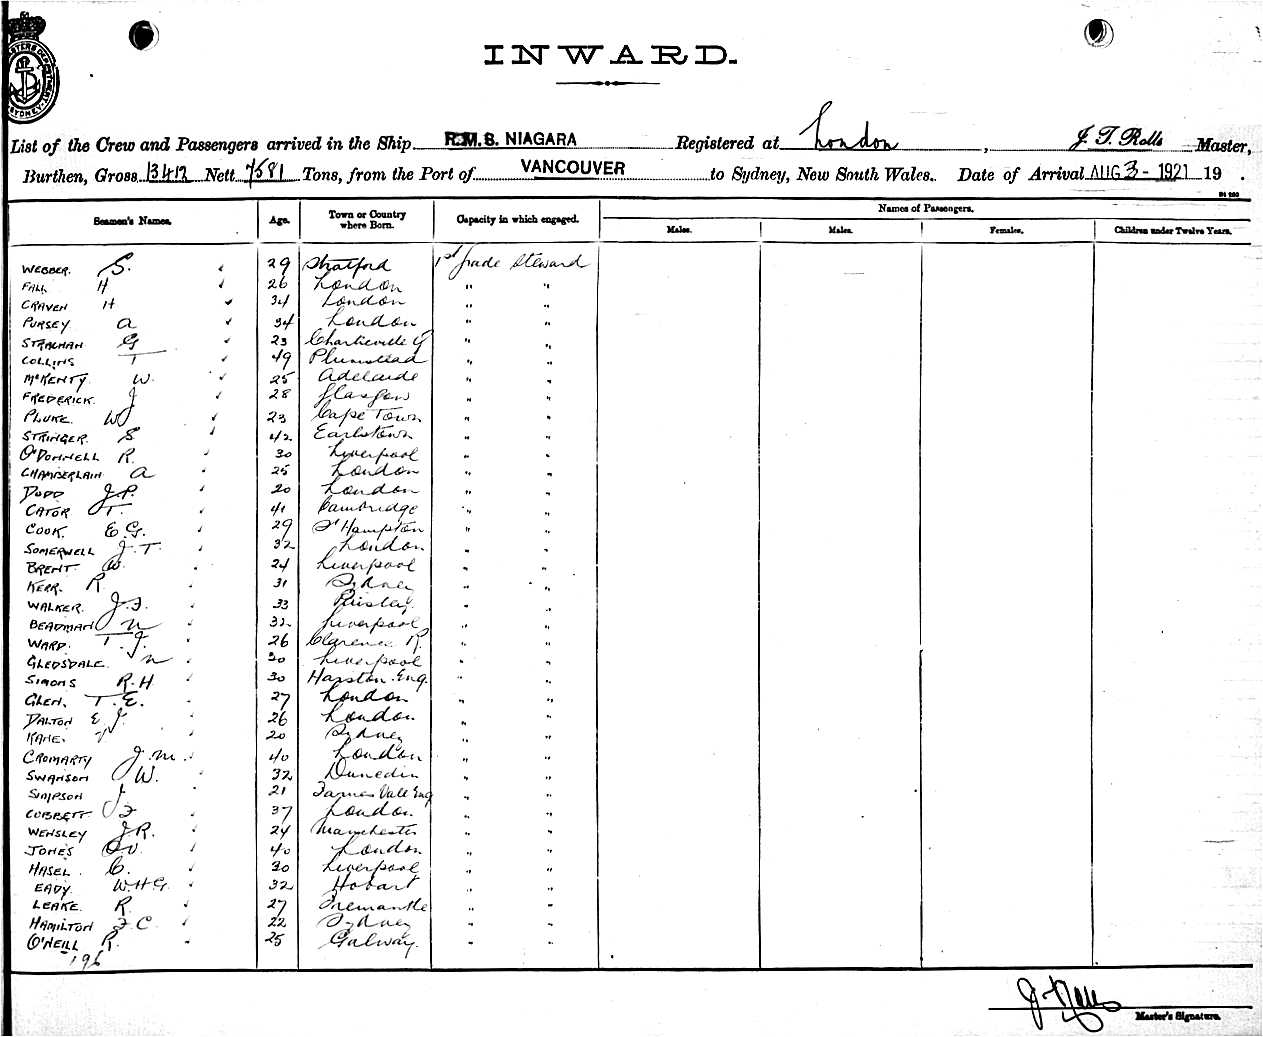 INWARD.
List of the Crew and Passengers arrived in the Ship R.M.S. NIAGARA Registered at London, J. T. Rolls Master,
Burthen, Gross 13412 Nett 7581 Tons, from the Port of VANCOUVER to Sydney, New South Wales. Date of Arrival AUG 3 - 1921 19 .
Seamen's Names. Age. Town or Country where Born. Capacity in which engaged. Names of Passengers.
Males. Males. Females. Children under Twelve Years.
WEBBER. S. 29 Stratford 1st Grade Steward
FALL H 26 London " "
CRAVEN H 34 London " "
PURSEY A 34 London " "
STRACHAN G 23 Charlieville " "
COLLINS T 49 Plumstead " "
McKENTY. W. 25 Adelaide " "
FREDERICK. J 28 Glasgow " "
PLUKE. W J 23 Cape Town " "
STRINGER. S 42 Earlstown " "
O'DONNELL R. 30 Liverpool " "
CHAMBERLAIN A 25 London " "
DODD J.P. 20 London " "
CATOR T. 41 Cambridge " "
COOK. E.G. 29 S'Hampton " "
SOMERWELL J.T. 32 London " "
BRENT. W. 24 Liverpool " "
KERR. R. 31 Sydney " "
WALKER. J.F. 33 " "
BEADMAN N 32 Liverpool " "
WARD. T.J. 26 Clarence R. " "
GLEDSDALE. N 30 Liverpool " "
SIMONS R.H 30 Harston Eng. " "
GLEN. T.E. 27 London " "
DALTON E J. 26 London " "
KANE. 20 Sydney " "
CROMARTY J.M. 40 London " "
SWANSON W. 32 Dunedin " "
SIMPSON J 21 Vale Eng " "
CORBETT F 37 London. " "
WENSLEY J.R. 24 Manchester " "
JONES 40 London " "
HASEL C. 30 Liverpool " "
EADY. W.H.G. 32 Hobart " "
LEAKE. R. 27 Fremantle " "
HAMILTON F C. 22 Sydney " "
O'NEILL R. 25 Galway. " "
196
J. T. Rolls
Master's Signature.